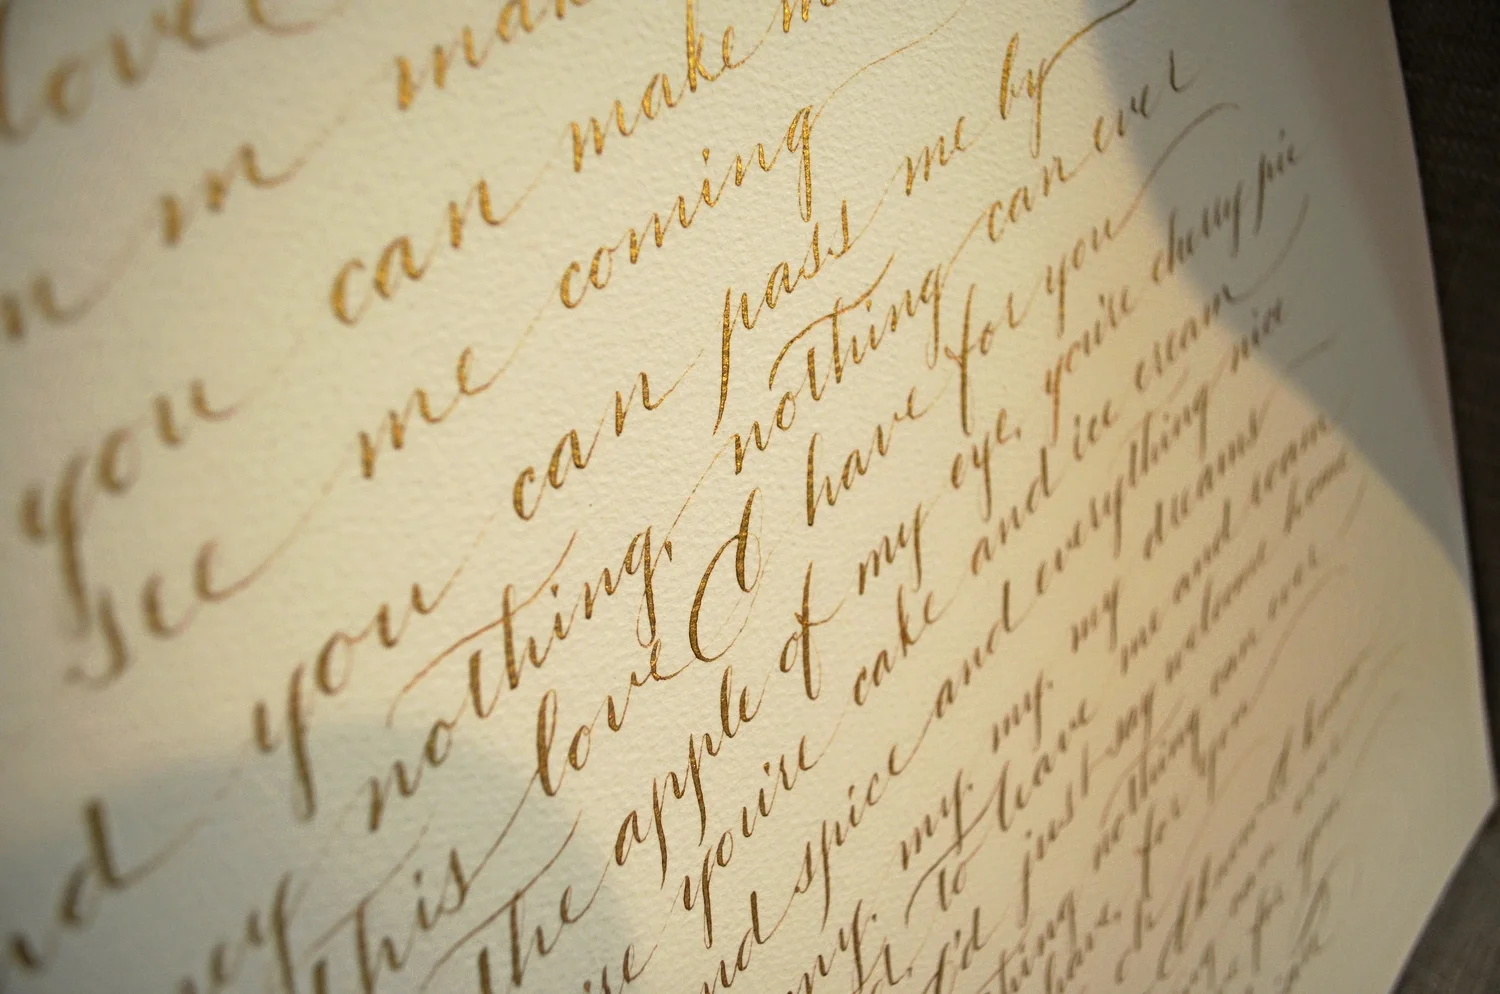 love
m man
you can make m
see me coming
nd you can pass me by
ney nothing, nothing can ever
this love I have for you
the apple of my eye, you're cherry pie
you're cake and ice cream
nd spice and everything nice
my, my, my, my dreams
to leave me and roam
I'd just say welcome home
thing nothing can ever
have for you